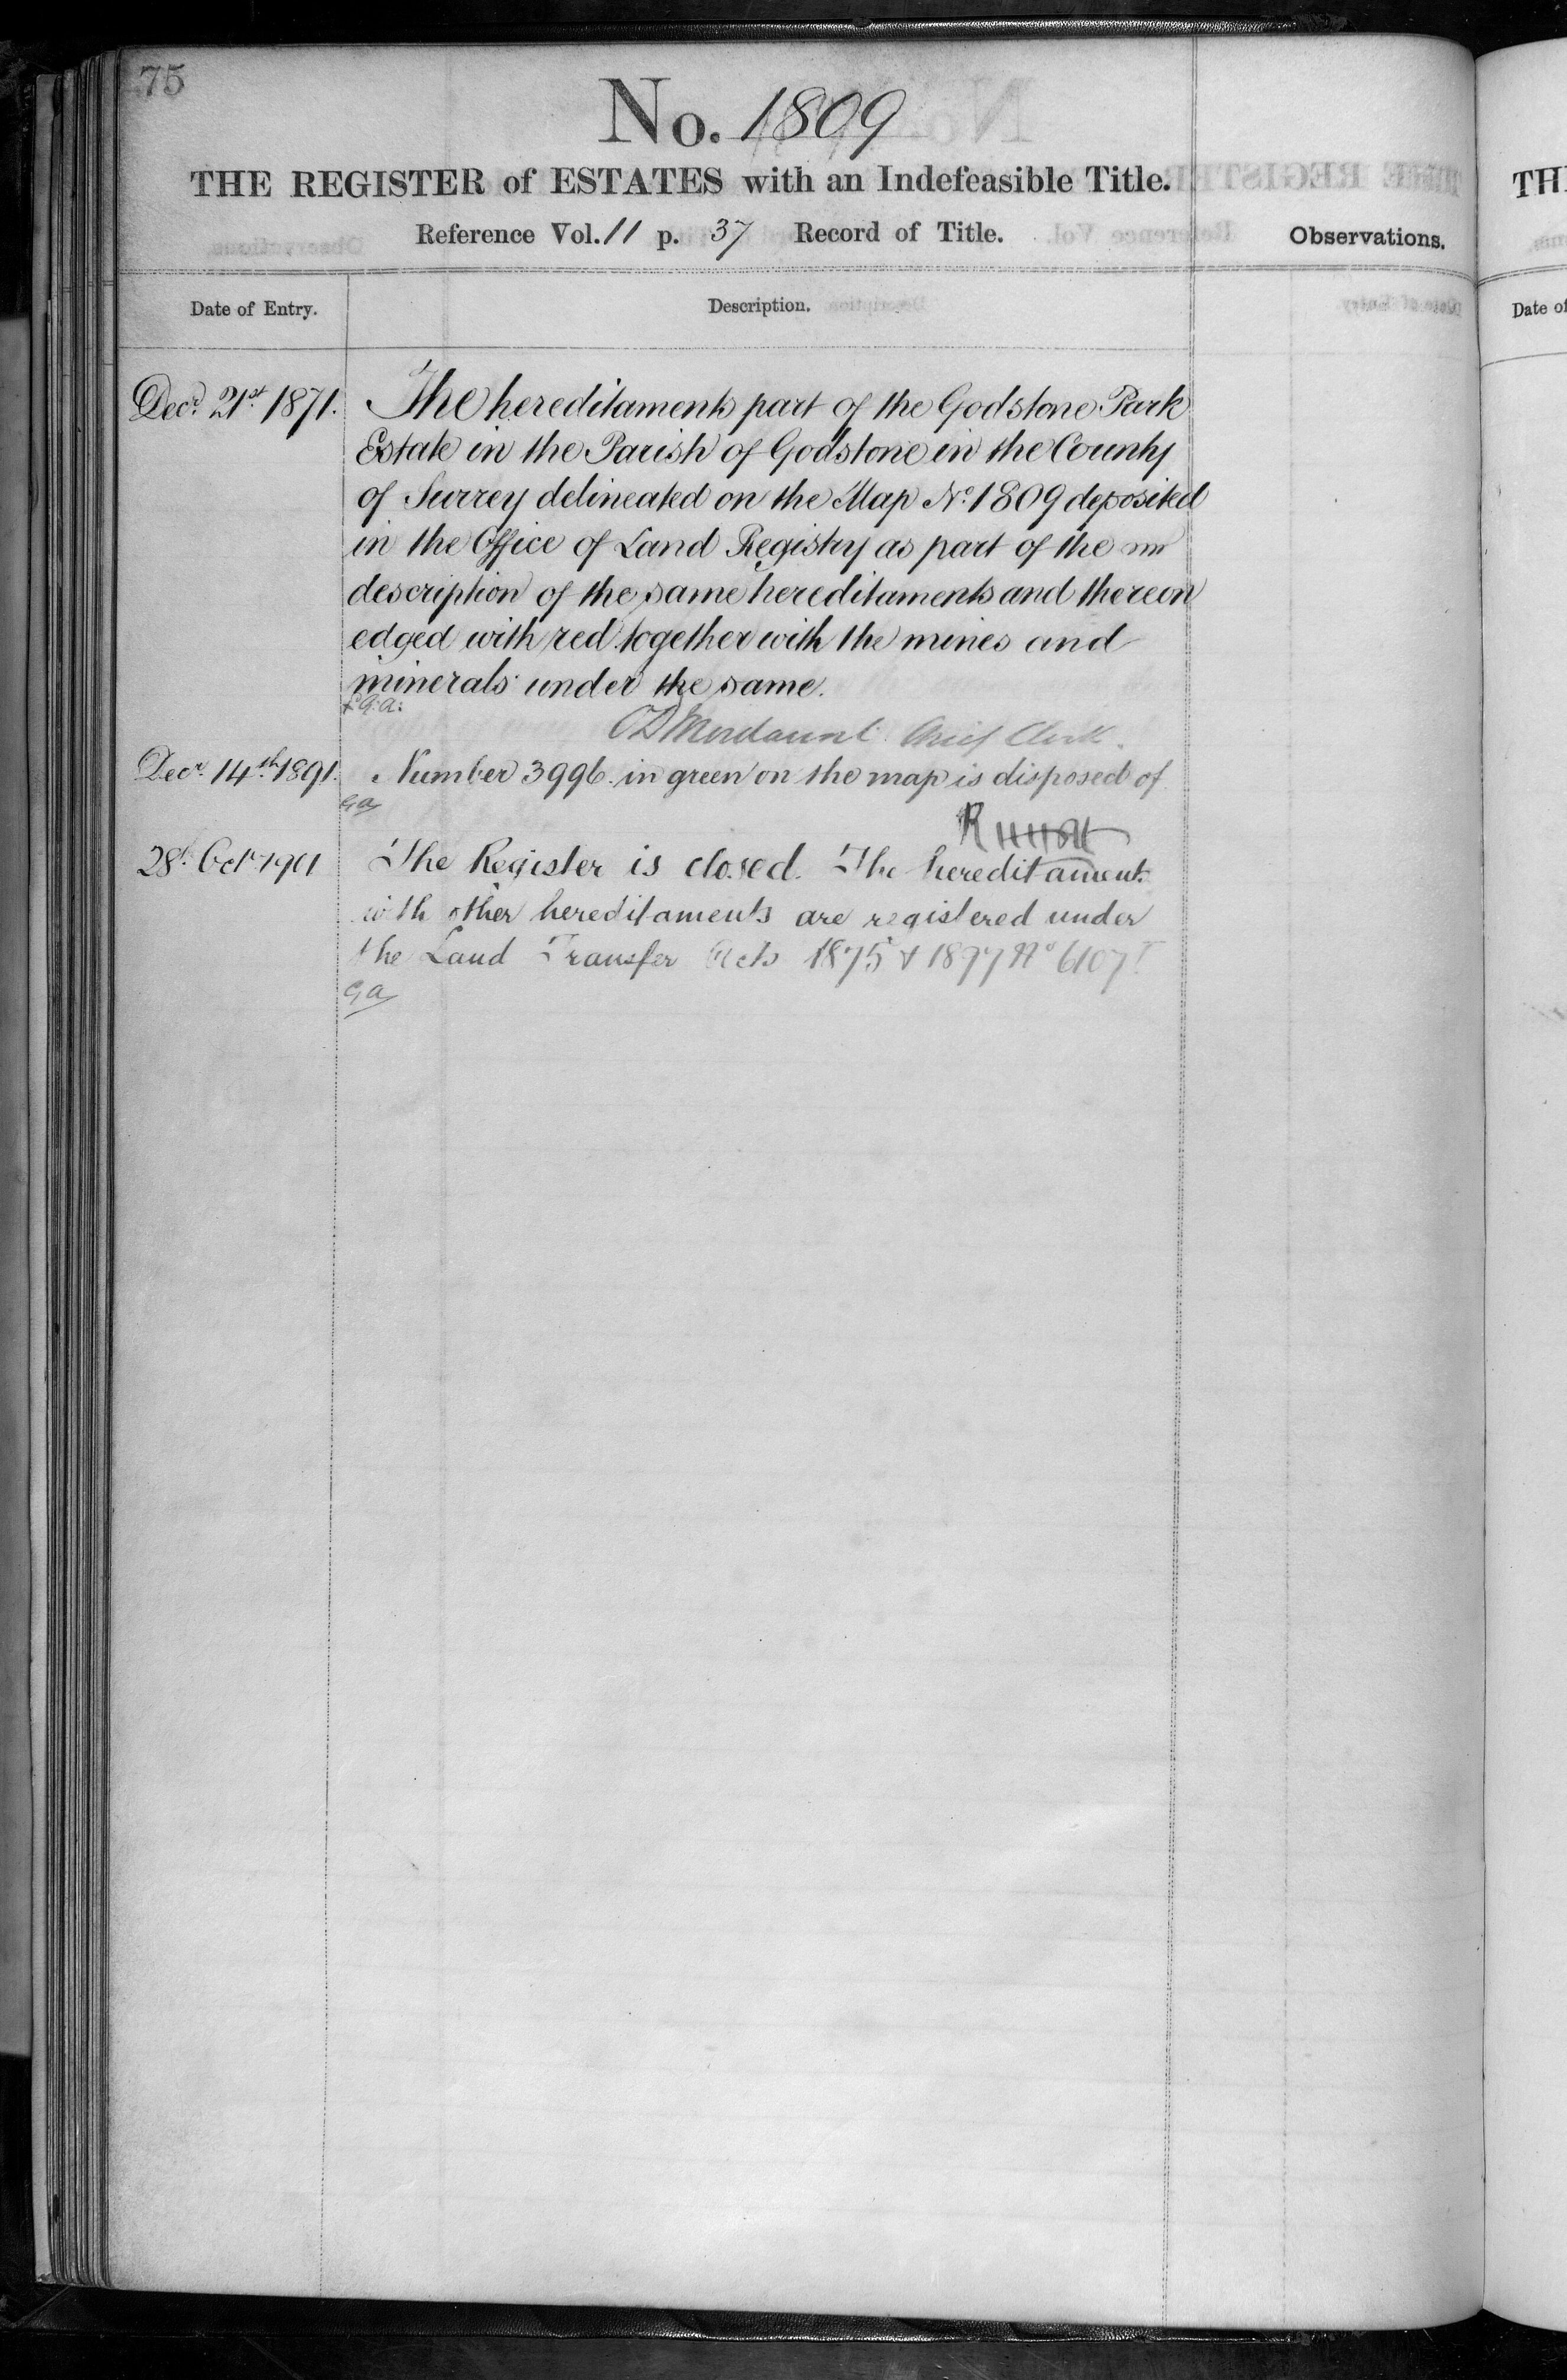 75
No. 1809
THE REGISTER of ESTATES with an Indefeasible Title.
Reference Vol. 11 p. 37 Record of Title.
Observations.
Date of Entry.
Description.
Decr. 21st 1871.
The hereditaments part of the Godstone Park
Estate in the Parish of Godstone in the County
of Surrey delineated on the Map No. 1809 deposited
in the Office of Land Registry as part of the
description of the same hereditaments and thereon
edged with red together with the mines and
minerals under the same.
Mordaunt Chief Clerk.
Decr. 14th 1891.
Number 3996 in green on the map is disposed of
GA
28th Octr 1901
The Register is closed. The hereditaments
with other hereditaments are registered under
the Land Transfer Acts 1875 & 1897 No 6107
GA
TH
Date of